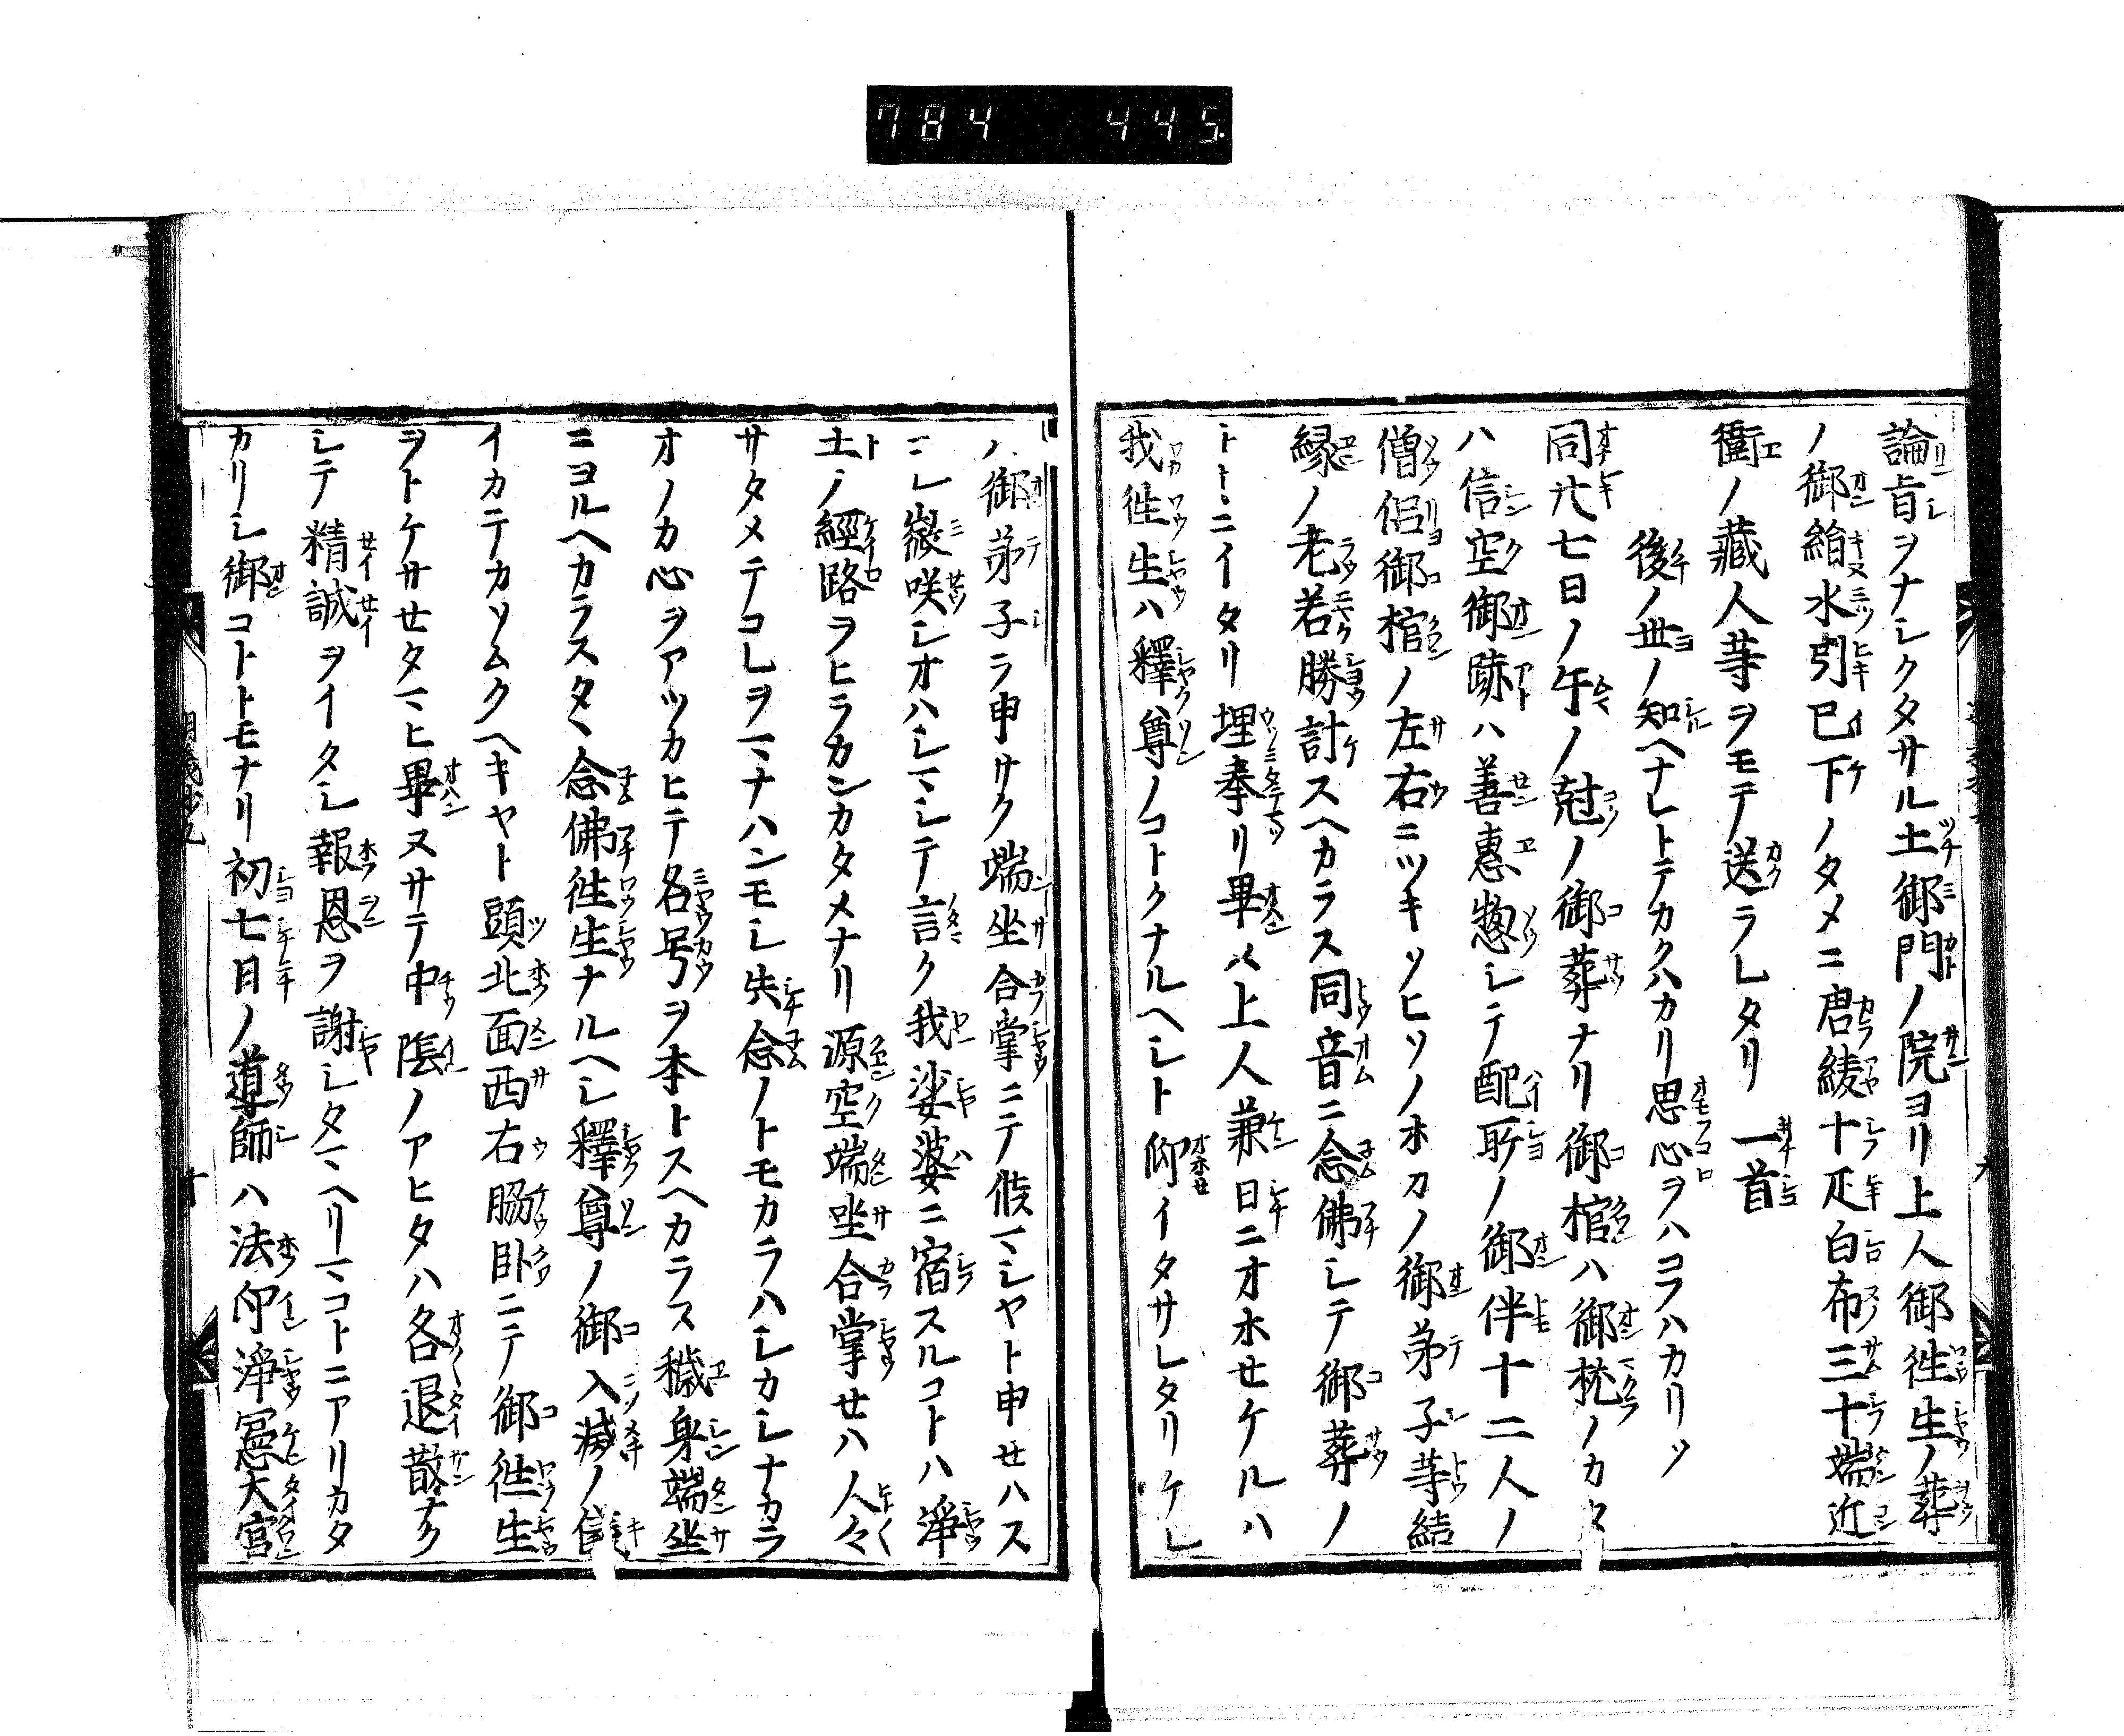 784 445
論旨ヲナシクタサル土御門ノ院ヨリ上人御徃生ノ葬
ノ御絈水引已下ノタメニ唐綾十疋白布三十端近
衞ノ藏人等ヲモテ送ラレタリ一首
後ノ世ノ知ヘナレトテカクハカリ思心ヲハコフハカリソ
同廿七日ノ午ノ尅ノ御葬ナリ御棺ハ御枕ノカタ
ハ信空御跡ハ善惠惣シテ配所ノ御伴十二人ノ
僧侶御棺ノ左右ニツキソヒソノホカノ御弟子等結
縁ノ老若勝計スヘカラス同音ニ念佛シテ御葬ノ
トトニイタリ埋奉リ畢ヌ上人兼日ニオホセケルハ
我徃生ハ釋尊ノコトクナルヘシト仰イタサレタリケレ
ハ御弟子ラ申サク端坐合掌ニテ候マシヤト申セハス
ニシ㣲咲シオハシマシテ言ク我娑婆ニ宿スルコトハ淨
土ノ經路ヲヒラカンカタメナリ源空端坐合掌セハ人々
サタメテコレヲマナハンモシ失念ノトモカラハシカシナカラ
オノカ心ヲアツカヒテ名号ヲ本トスヘカラス穢身端坐
ニヨルヘカラスタヽ念佛徃生ナルヘシ釋尊ノ御入滅ノ儀
イカテカソムクヘキヤト頭北面西右脇臥ニテ御徃生
ヲトケサセタマヒ畢ヌサテ中陰ノアヒタハ各退散ナク
シテ精誠ヲイタシ報恩ヲ謝シタマヘリマコトニアリカタ
カリシ御コトトモナリ初七日ノ導師ハ法印淨憲大宮
十